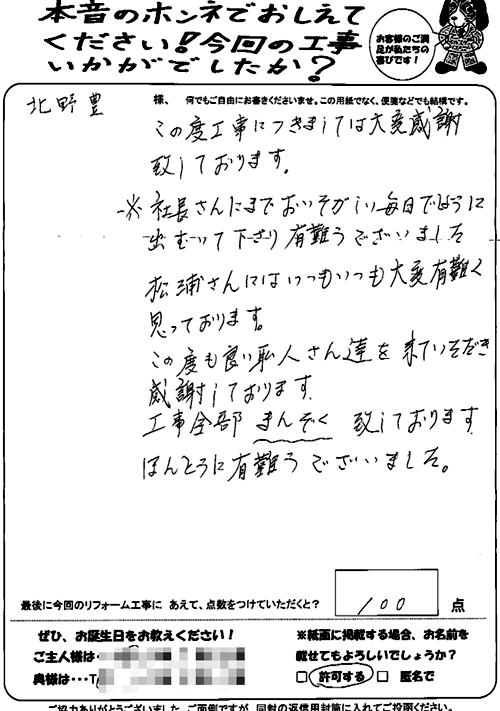 本音のホンネでおしえて
ください!今回の工事
いかがでしたか?
お客様のご満
足が私たちの
喜びです!
北野豊 様、 何でもご自由にお書きくださいませ。この用紙でなく、便箋などでも結構です。
この度工事につきましては大変感謝
致しております。
※ 社長さんにまでおいそがしい毎日でしように
出むいて下さり有難うございました
松浦さんにはいつもいつも大変有難く
思っております。
この度も良い私人さん達を来ていそだき
感謝しております
工事全部 まんぞく 致しております
ほんとうに有難うございました。
最後に今回のリフォーム工事に あえて、点数をつけていただくと?
100 点
ぜひ、お誕生日をお教えください!
ご主人様は・
奥様は・・・T
※紙面に掲載する場合、お名前を
載せてもよろしいでしょうか?
□ 許可する □ 匿名で
ご協力ありがとうございました。ご面倒ですが、同封の返信用封筒に入れてご投函ください。